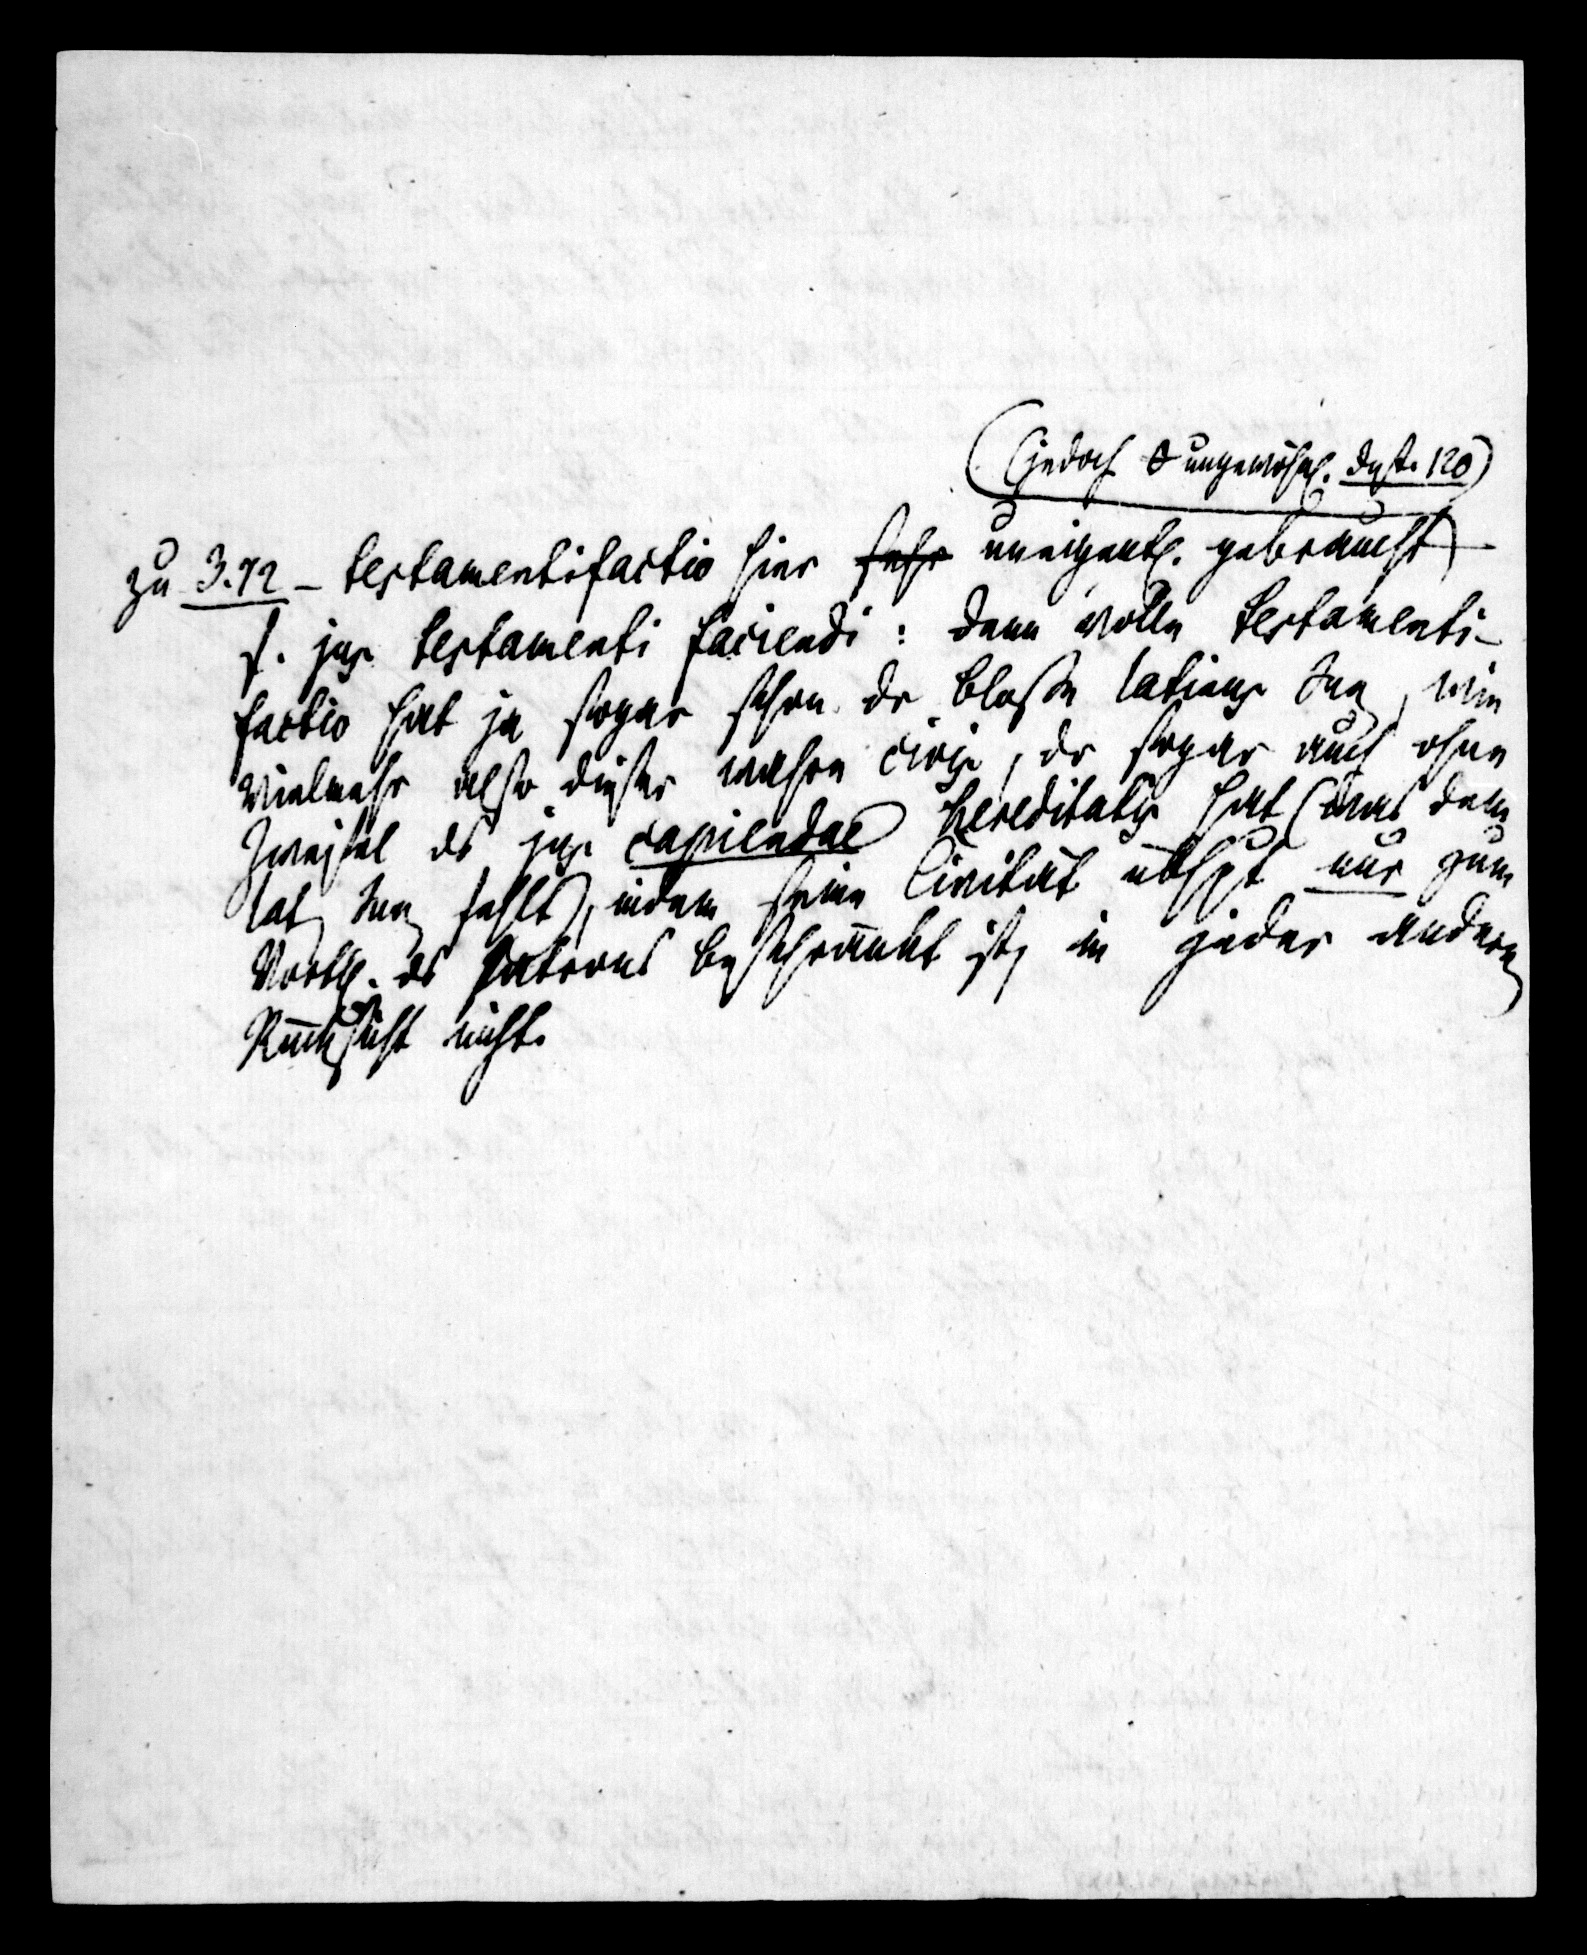 (jedoch ungewöhnl. Inst. 120)
zu 3.72 - testamentifactio hier sehr uneigentl. gebraucht
f. jus testamenti faciendi: denn volle testamenti-
factio hat ja sogar schon der bloße latinus Jun, wie
vielmehr also dieser wahre civis, der sogar auch ohne
Zweifel das jus capiendae hereditatis hat (was dem
lat Jun fehlt), indem seine Civität übhpt nur zum
Vorth. des Patrons beschränkt ist, in jeder andern
Rücksicht nicht.